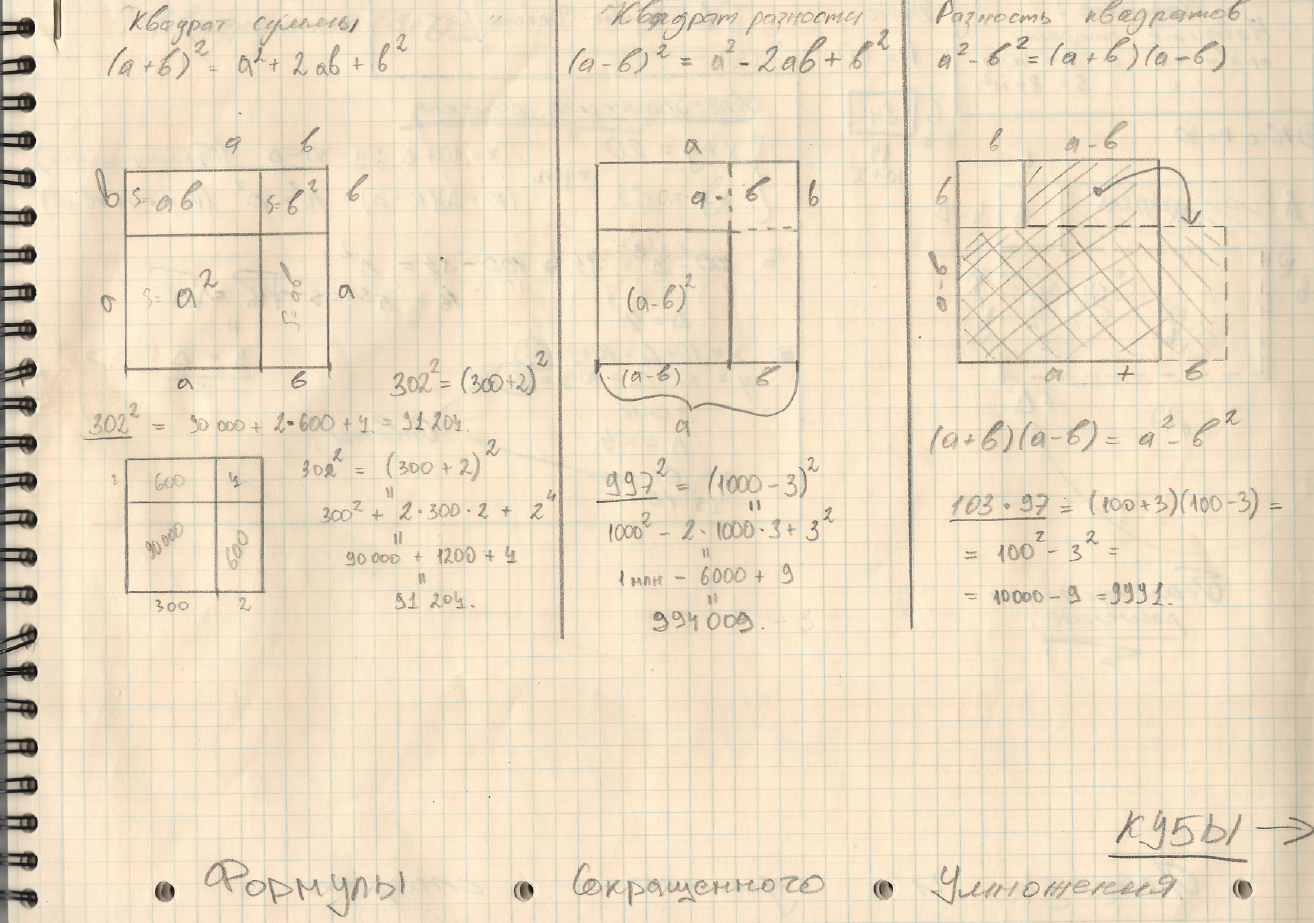 Квадрат суммы
(a+b)² = a² + 2ab + b²
a b
b S=ab S=b² b
a S=a² S=ab a
a b
302² = (300+2)²
302² = 90 000 + 2•600 + 4 = 91 204.
2 600 4
90 000 600
300 2
302² = (300 + 2)²
"
300² + 2·300·2 + 2⁴
"
90 000 + 1200 + 4
"
91 204.
Квадрат разности
(a-b)² = a² - 2ab + b²
a
a · b b
(a-b)²
(a-b) b
a
997² = (1000 - 3)²
"
1000² - 2·1000·3 + 3²
"
1 млн - 6000 + 9
"
994 009.
Разность квадратов.
a² - b² = (a+b)(a-b)
b a-b
b
a-b
a + b
(a+b)(a-b) = a² - b²
103 · 97 = (100+3)(100-3) =
= 100² - 3² =
= 10000 - 9 = 9991.
КУБЫ →
Формулы Сокращенного Умножения.